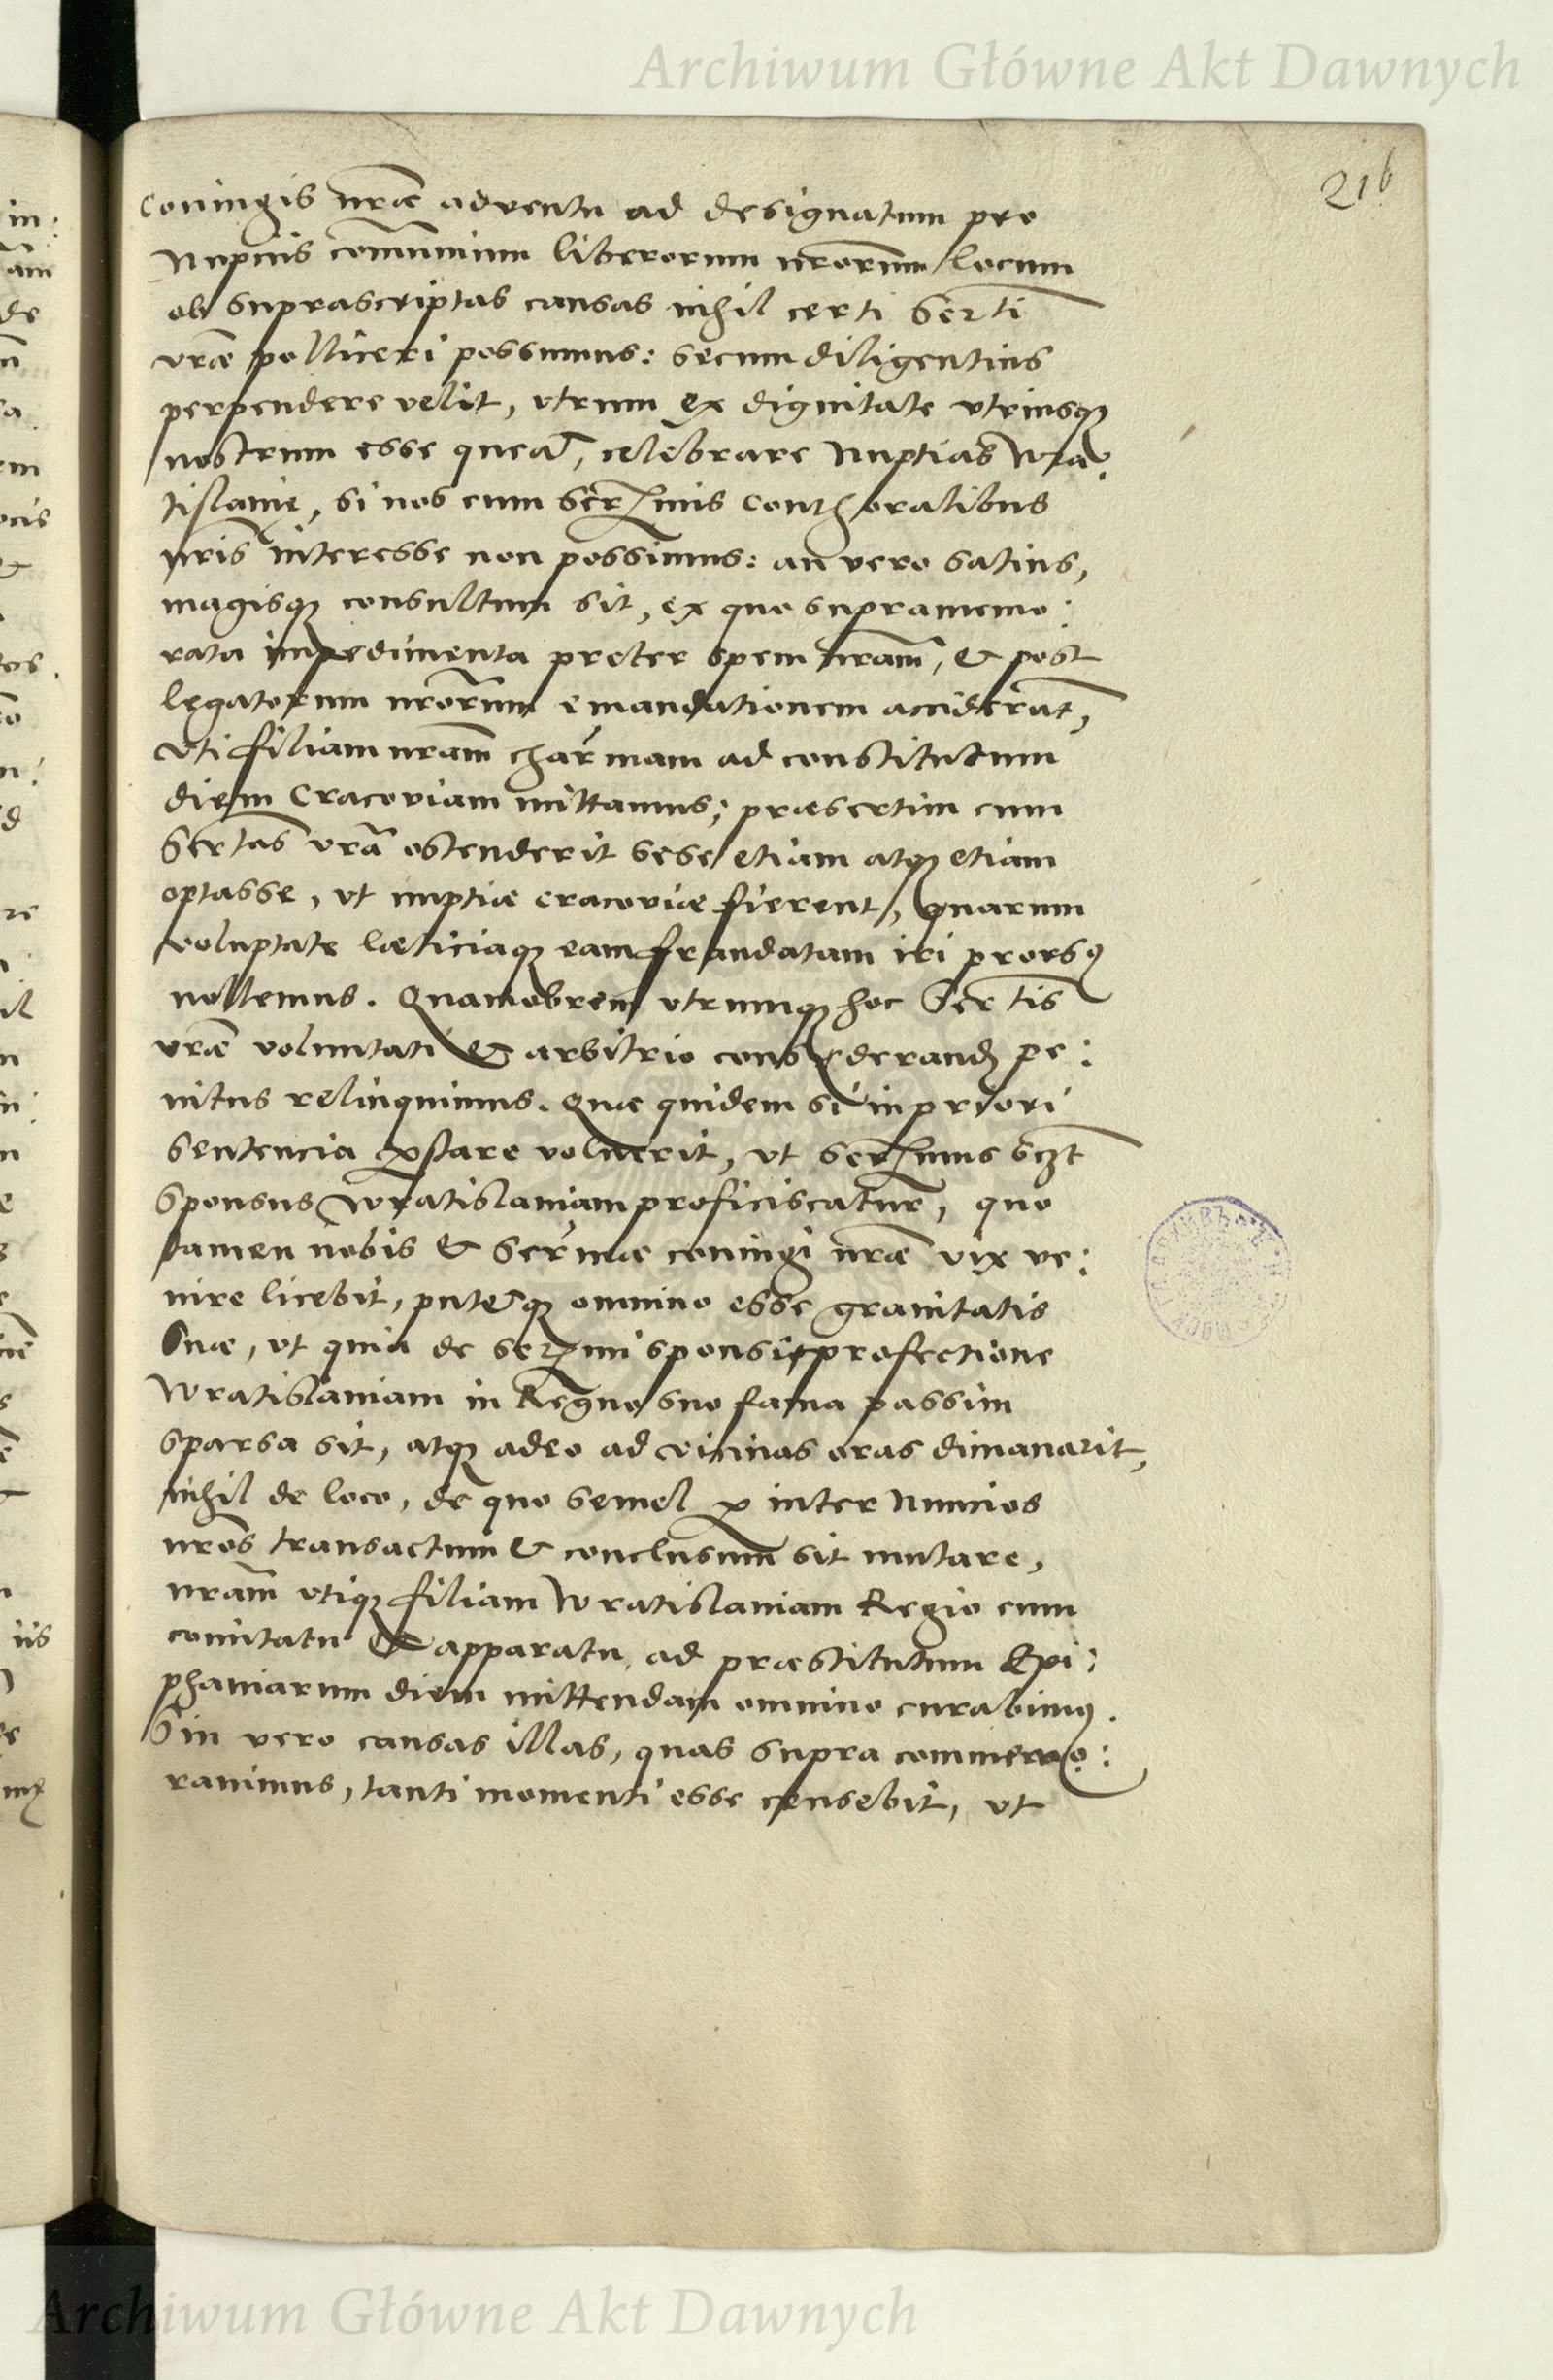 Archiwum Główne Akt Dawnych
216
Coniugis nrãe adventu ad designatum pro
Nupciis com̃unium liberorum nrõrum locum
ob suprascriptas causas nihil certi Serti
vrãe polliceri possumus: secum diligentius
perpendere velit, vtrum ex dignitate vtriusqȝ
nostrum esse queat, celebrare Nuptias Wra:
tislauię, si nos cum Serᵐⁱˢ Conthoralibus
nr̃is interesse non possimus: an vero satius,
magisqȝ consultum sit, ex quo supramemo:
rata impedimenta preter spem nrãm, & post
legatorum nrõrum emandationem acciderũt,
vti filiam nrãm charᵐᵃᵐ ad constitutum
diem Cracoviam mittamus; præsertim cum
Sertas vrã ostenderit sese etiam atqȝ etiam
optasse, vt nuptiæ cracoviæ fierent, quarum
voluptate læticiaqȝ eam fraudatam iri prorsꝯ
nollemus. Quamobrem vtrumqȝ hoc Sertis
vrãe voluntati & arbitrio considerandȝ pe:
nitus relinquimus. Quæ quidem si in priori
sentencia ꝑstare voluerit, vt Serᵐᵘˢ sczt
Sponsus Wratislauiam proficiscatur, quo
tamen nobis & Serᵐᵃᵉ coniugi nrãe vix ve:
nire licebit, putetqȝ omnino esse grauitatis
suæ, vt quia de Serᵐⁱ sponsi profectione
Wratislauiam in Regno suo fama passim
sparsa sit, atqȝ adeo ad vicinas oras dimanarit,
nihil de loco, de quo semel ꝑ inter Nuncios
nrõs transactum & conclusum sit mutare,
nrãm vtiqȝ filiam Wratislauiam Regio cum
comitatu & apparatu, ad præstitutum Epi:
phaniarum diem mittendam omnino curabimꝯ.
Sin vero causas illas, quas supra commemo:
rauimus, tanti momenti esse censebit, vt
Archiwum Główne Akt Dawnych